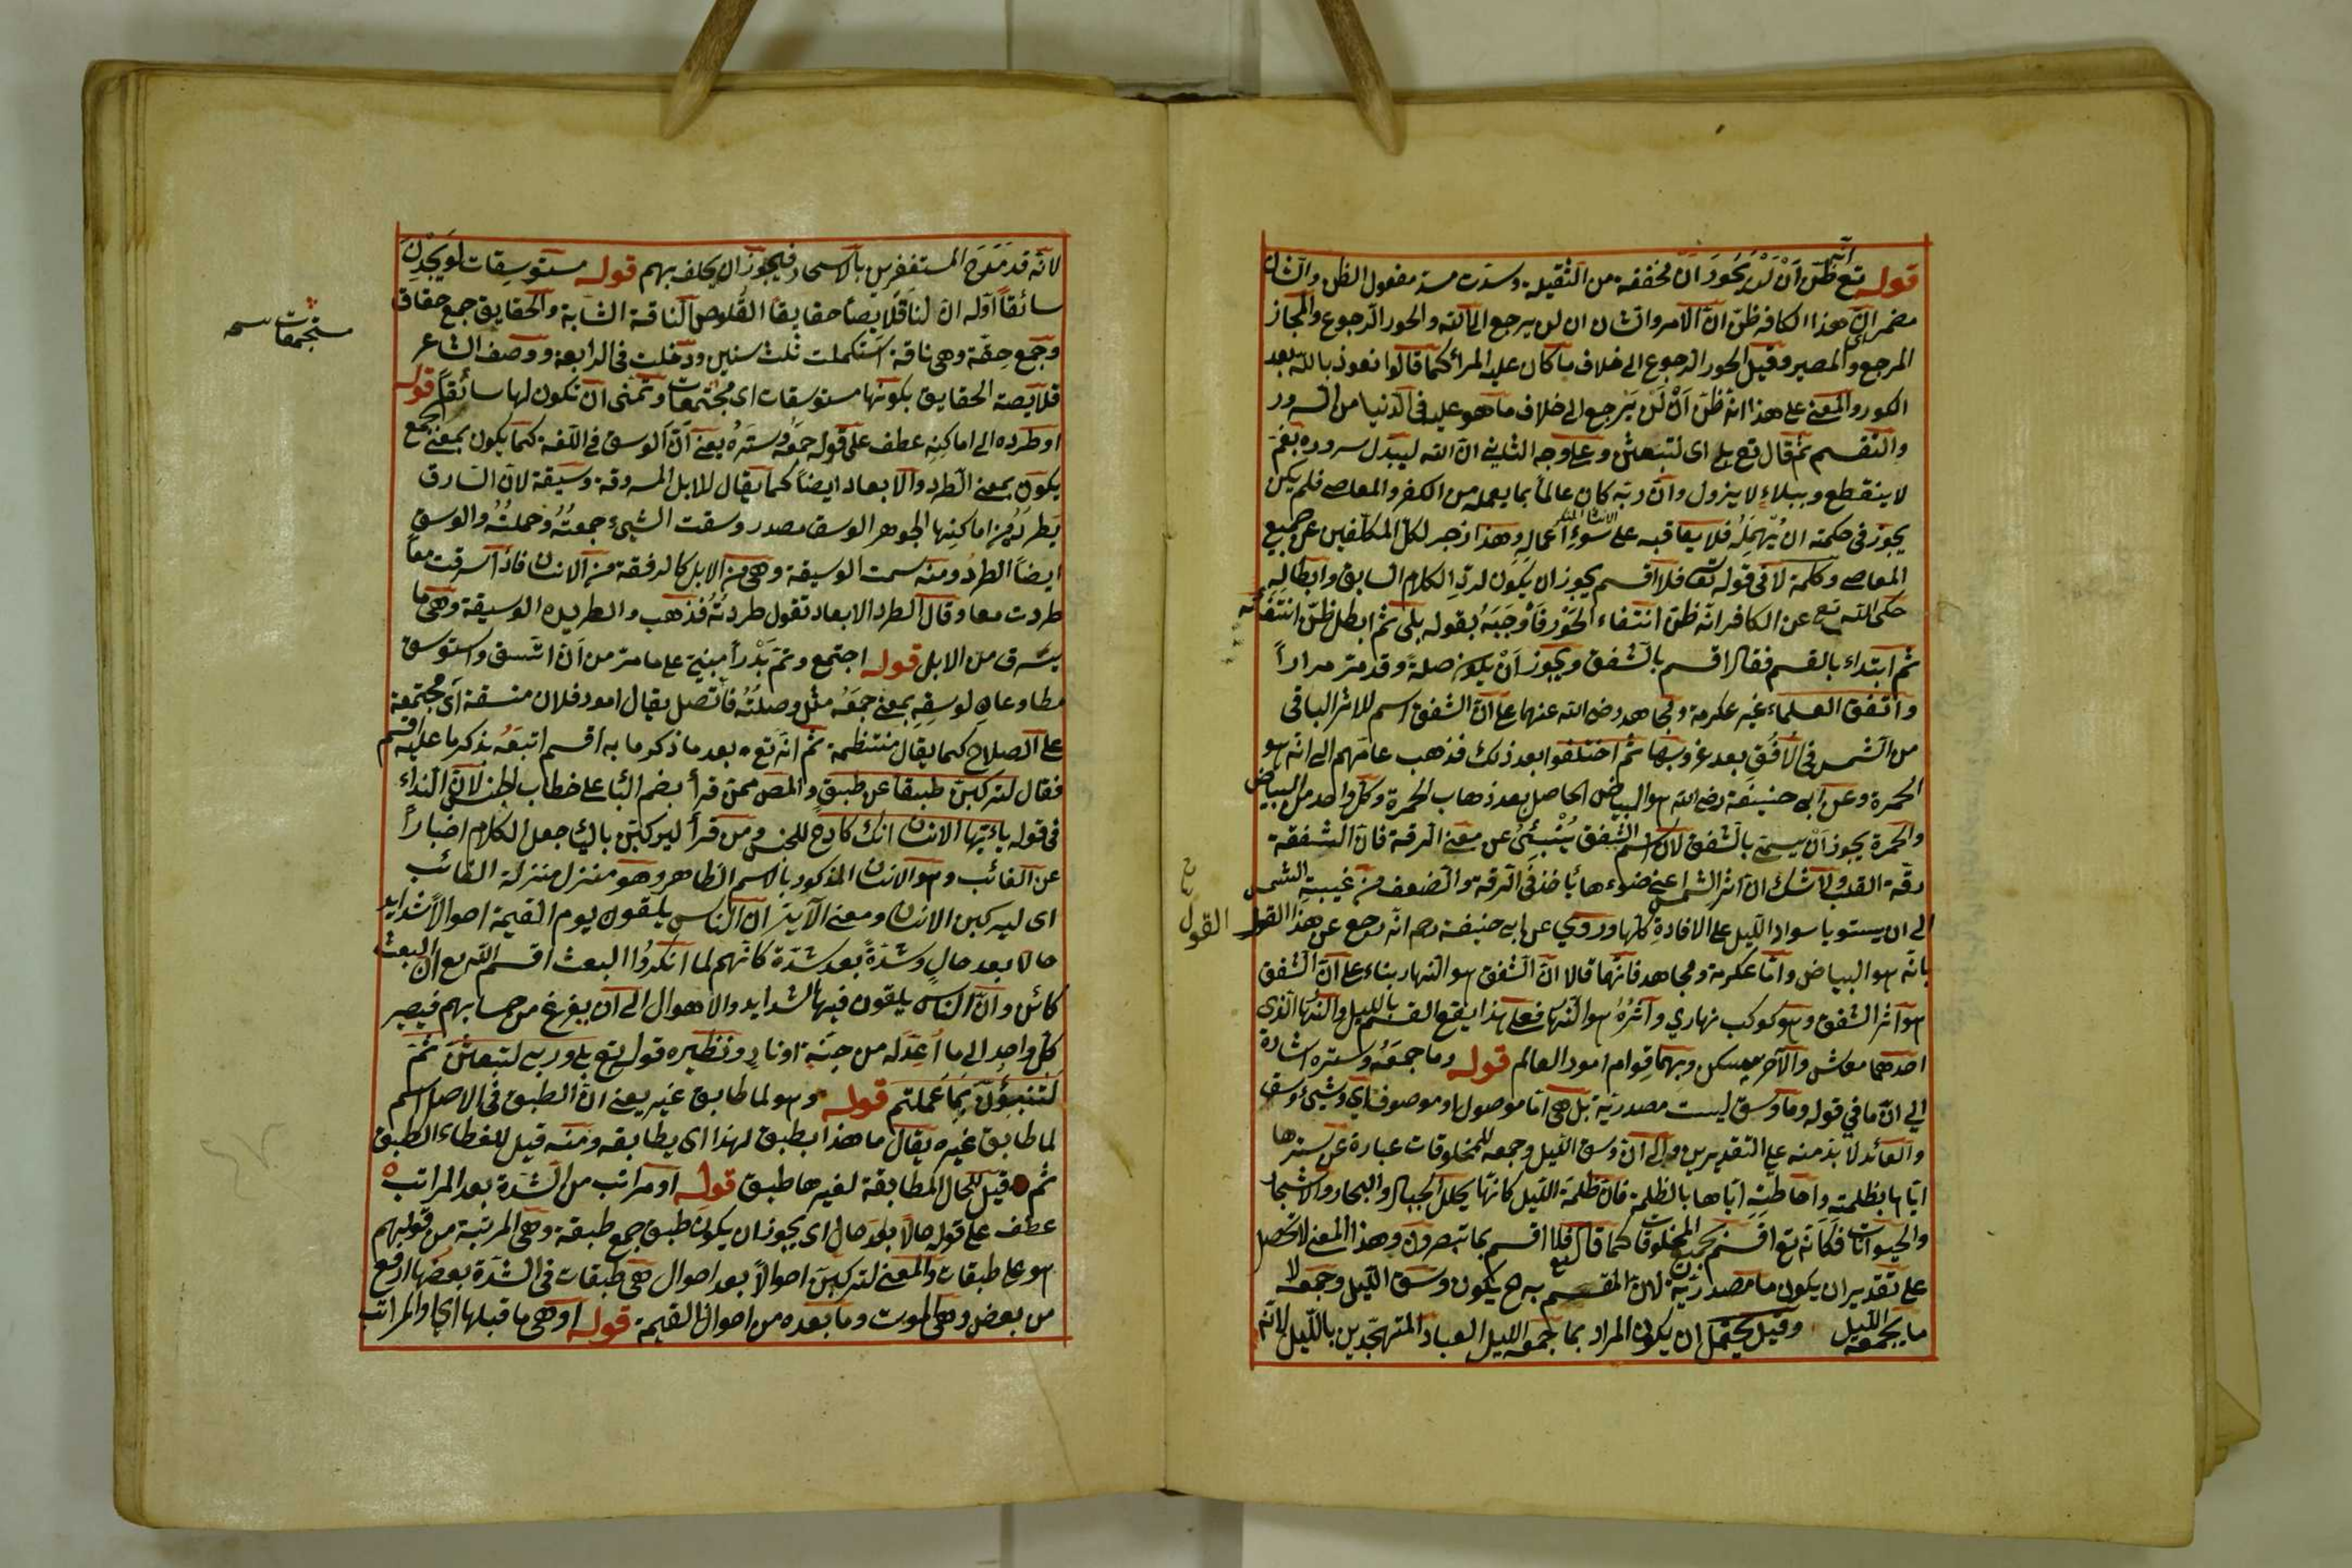 قوله تع انه ظن ان لن يحور ان مخففة من الثقيلة وسدت مسد مفعول الظن والشان
مضمر اى ان هذا الكافر ظن ان الامر والشان ان لن يرجع الى الله والحور الرجوع والمجاز
المرجع والمصير وقيل الحور الرجوع الى خلاف ما كان عليه المرأ كما قالوا نعوذ بالله بعد
الكور والمعنى على هذا انه ظن ان لن يرجع الى خلاف ما هو عليه فى الدنيا من السرور
والتنعم ثم قال تع بلى اى لتبعثن وعلى وجه الثانى ان الله ليبدل سروره بغم
لا ينقطع وببلاء لا يزول وان ربه كان عالما بما يعمله من الكفر والمعاصى فلم يكن
يجوز فى حكمته ان يهمله فلا يعاقبه على سوء اعماله وهذا زجر لكل المكلفين عن جميع
المعاصى وكلمة لا فى قوله تع فلا اقسم يجوز ان يكون لرد الكلام السابق وابطاله
حكى الله تع عن الكافر انه ظن انتفاء الحور فاوجبه بقوله بلى ثم ابطل ظن انتفائه
ثم ابتداء بالقسم فقال اقسم بالشفق ويجوز ان يكون صلة وقد مر مرارا
واتفق العلماء غير عكرمة ومجاهد رضى الله عنهما على ان الشفق اسم للاثر الباقى
من الشمس فى الافق بعد غروبها ثم اختلفوا بعد ذلك فذهب عامتهم الى انه هو
الحمرة وعن ابى حنيفة رضى الله هو البياض الحاصل بعد ذهاب الحمرة وكل واحد من البياض
والحمرة يجوز ان يسمى بالشفق لان اسم الشفق ينبئ عن معنى الرقة فان الشفقة
رقة القلب ولا شك ان اثر الشمس اعنى ضوءها يأخذ فى الرقة والضعف من غيبة الشمس
الى ان يستولى سواد الليل على الافاق كلها وروي عن ابى حنيفة رحه انه رجع عن هذا القول
القول
بانه هو البياض واما عكرمة ومجاهد فانهما قالا ان الشفق هو النهار بناء على ان الشفق
هو اثر الشفق وهو كوكب نهاري واثره هو النهار فعلى هذا يقع القسم بالليل والنهار الذى
احدهما معاش والآخر سكن وبهما قوام امور العالم قوله وما جمعه وستره اشارة
الى ان ما في قوله وما وسق ليست مصدرية بل هى اما موصولة او موصوفة اي وشيئ وسق
والعائد لا بد منه على التقديرين والى ان وسق الليل وجمعه للمخلوقات عبارة عن سترها
اياها بظلمته واحاطته اياها بالظلمة فان ظلمة الليل كانها يجلل الجبال والبحار والاشجار
والحيوانات فكانه تع اقسم بجميع المخلوقات كما قال فلا اقسم بما تبصرون وهذا المعنى لا تحصل
على تقدير ان يكون ما مصدرية لان المقسم به ح يكون وسق الليل وجمعه لا
ما يجمعه الليل وقيل يحتمل ان يكون المراد بما جمعه الليل العباد المتهجدين بالليل لانه
لانه قد مدح المستغفرين بالاسحار فيجوز ان يحلف بهم قوله مستوسقات لو يجدن
سائقا اوله ان لنا قلايصا حقايقا القلاص الناقة الشابة والحقايق جمع حقاق
وجمع حقة وهى ناقة استكملت ثلث سنين ودخلت فى الرابعة ووصف الشاعر
قلايصة الحقايق بكونها مستوسقات اى مجتمعات وتمنى ان تكون لها سائقا قوله
مستجمعات نسخه
او طرده الى اماكنه عطف على قوله جمعه وستره يعنى ان الوسق فى اللغة كما يكون بمعنى الجمع
يكون بمعنى الطرد والابعاد ايضا كما يقال للابل المسروقة وسيقة لان السارق
يطرد من اماكنها الجوهر الوسق مصدر وسقت الشيء جمعته وحملته والوسق
ايضا الطرد ومنه سمت الوسيقة وهى من الابل كالرفقة من الانسان فاذا سرقت معا
طردت معا وقال الطرد الابعاد تقول طردته فذهب والطريدة الوسيقة وهى ما
يسرق من الابل قوله اجتمع وتم بدرا مبنى على ما مر من ان اتسق واستوسق
مطاوعان لوسقه بمعنى جمعه مثل وصلته فاتصل يقال امور فلان متسقة اى مجتمعة
على الصلاح كما يقال منتظمة ثم انه تع بعد ما ذكر ما به اقسم اتبعه بذكر ما عليه اقسم
فقال لتركبن طبقا عن طبق والمص ممن قرأ بضم البا على خطاب الجنس لان النداء
فى قوله يا ايها الانسان انك كادح للجنس ومن قرأ ليركبن بالياء جعل الكلام اخبارا
عن الغائب وهو الانسان المذكور بالاسم الظاهر وهو منزل منزلة الغائب
اى ليركبن الانسان ومعنى الآية ان الناس يلقون يوم القيمة احوالا شدايد
حالا بعد حال وشدة بعد شدة كانهم لما انكروا البعث اقسم الله تع ان البعث
كائن وان الناس يلقون فيها الشدايد والاهوال الى ان يفرغ من حسابهم فيصير
كل واحد الى ما اعد له من جنة او نار ونظيره قوله تع بلى وربى لتبعثن ثم
لتنبؤن بما عملتم قوله وهو لما طابق غيره يعنى ان الطبق فى الاصل اسم
لما طابق غيره يقال ما هذا بطبق لهذا اى يطابقه ومنه قيل للغطاء الطبق
ثم قيل للحال المطابقة لغيرها طبق قوله او مراتب من الشدة بعد المراتب
عطف على قوله حالا بعد حال اى يجوز ان يكون طبق جمع طبقة وهى المرتبة من قولهم
هو على طبقات والمعنى لتركبن احوالا بعد احوال هى طبقات فى الشدة بعضها ارفع
من بعض وهى الموت وما بعده من احوال القيمة قوله او هى ما قبلها اي او المراتب